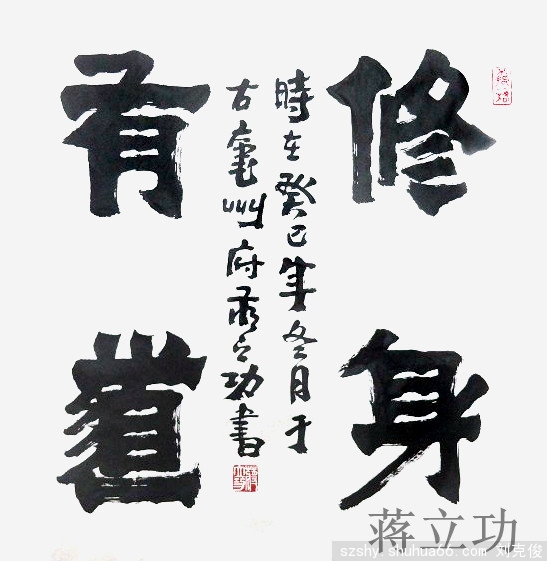 修身
時在癸巳年冬月于
古夔州府蒋立功書
有道
蒋立功
szshy.shuhua66.com 刘克俊